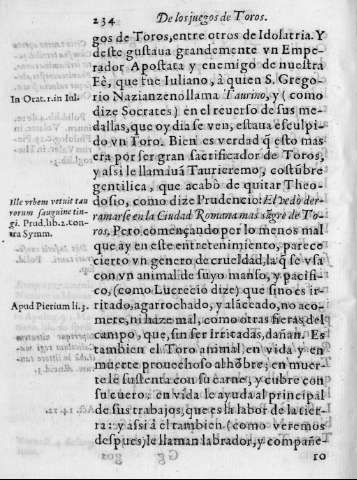 234
De los juegos de Toros.
gos de Toros, entre otros de Idolatria. Y
deste gustaua grandemente vn Empe-
rador Apostata y enemigo de nuestra
Fè, que fue Iuliano, à quien S. Grego-
In Orat. 1. in Iul.
rio Nazianzeno llama Taurino, y (como
dize Socrates) en el reuerso de sus me-
dallas, que oy dia se ven, estaua esculpi-
do vn Toro. Bien es verdad q̃ esto mas
era por ser gran sacrificador de Toros,
y assi le llamauã Taurieremo, costũbre
gentilica, que acabò de quitar Theo-
Ille vrbem vetuit tau
rorum sanguine tin-
gi. Prud. lib. 2. con-
tra Symm.
dosio, como dize Prudencio: El vedò der-
ramarse en la Ciudad Romana mas sãgre de To-
ros. Pero començando por lo menos mal
que ay en este entretenimiento, parece
cierto vn genero de crueldad, la q̃ se vsa
con vn animal de suyo manso, y pacifi-
co, (como Lucrecio dize) que sino es ir-
Apud Pierium li. 3.
ritado, agarrochado, y alaceado, no aco-
mete, ni haze mal, como otras fieras del
campo, que, sin ser irritadas, dañan. Es
tambien el Toro animal en vida y en
muerte prouechoso al hõbre; en muer-
te le sustenta con su carne, y cubre con
su cuero: en vida le ayuda al principal
de sus trabajos, que es la labor de la tier-
ra: y assi à el tambien (como veremos
despues) le llaman labrador, y compañe-
ro